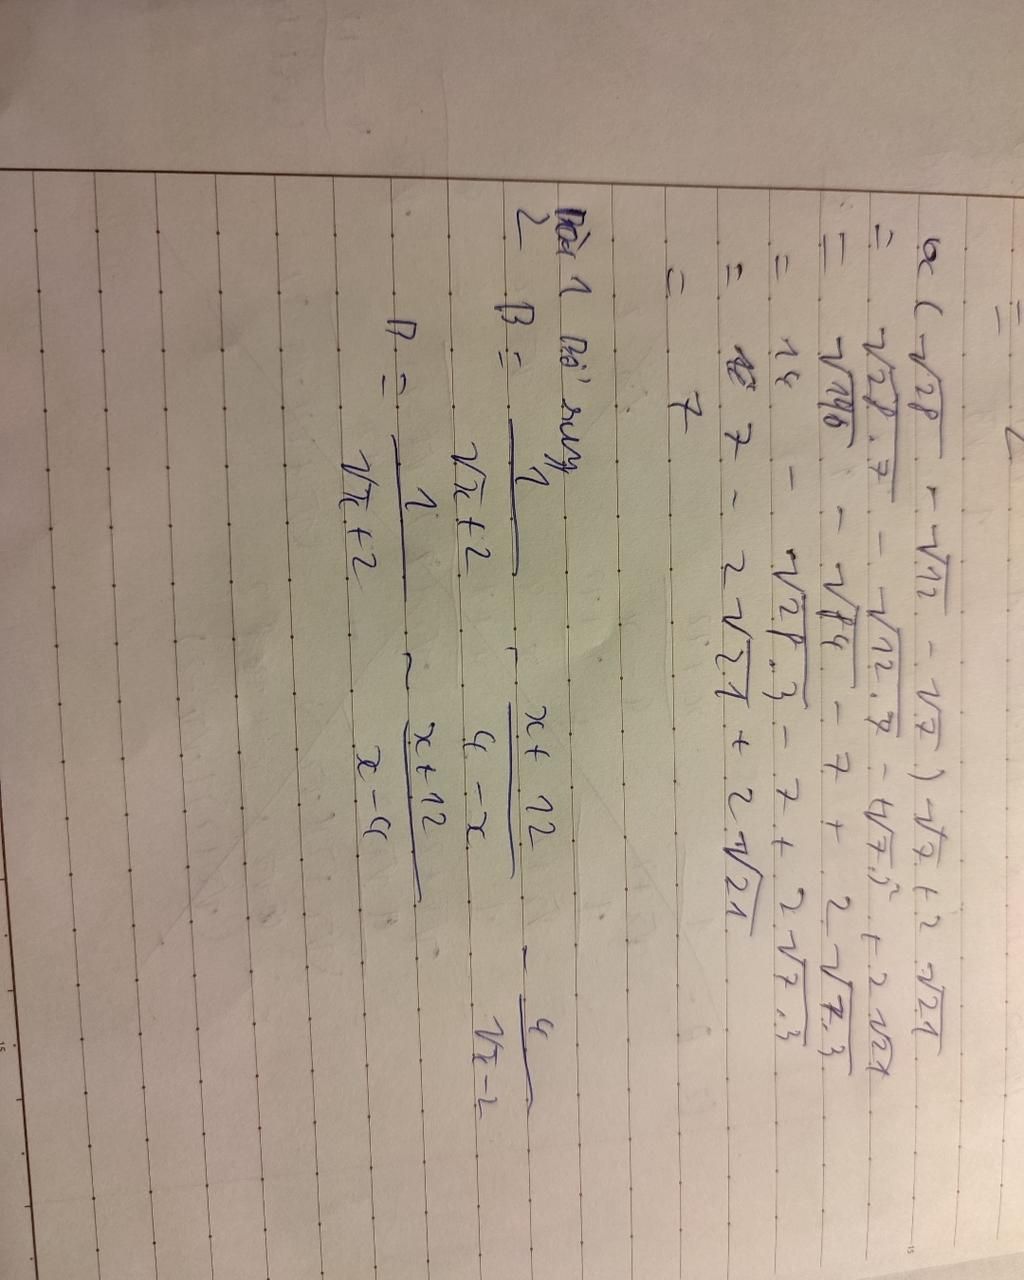 =
2
a (√28 - √12 - √7) √7 + 2√21
= √28.7 - √12.7 - √7.7 + 2√21
= √196 - √84 - 7 + 2√7.3
= 14 - √28.3 - 7 + 2√7.3
= 7 - 2√21 + 2√21
= 7
Bài 1 Bổ sung
2
B = 1/(√x+2) - (x+12)/(4-x) - 4/(√x-2)
B = 1/(√x+2) - (x+12)/(x-4)